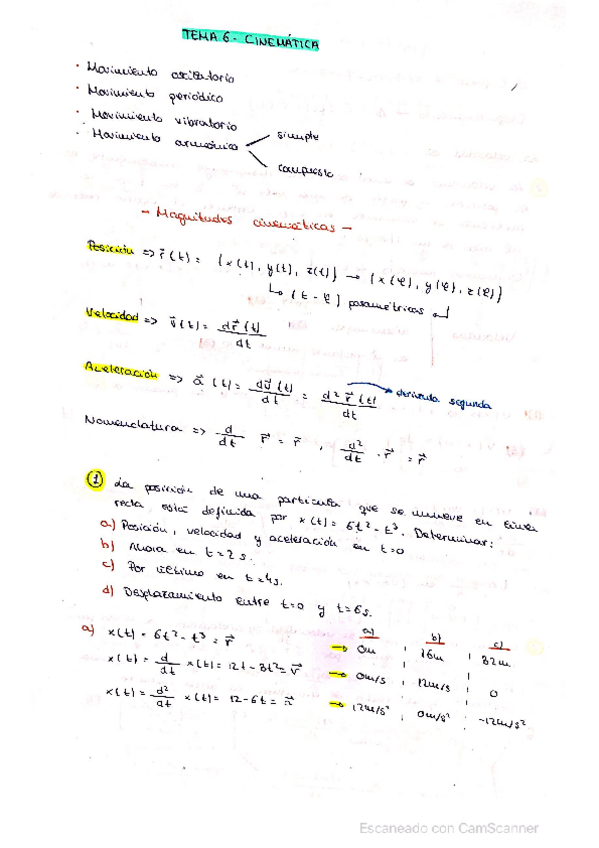 TEMA 6 - CINEMÁTICA
· Movimiento oscilatorio
· Movimiento periódico
· Movimiento vibratorio
· Movimiento armónico
simple
compuesto
- Magnitudes cinemáticas -
Posición => r⃗(t) = {x(t), y(t), z(t)} → {x(φ), y(φ), z(φ)}
↳ (t - φ) paramétricas ↲
Velocidad => v⃗(t) = dr⃗(t)/dt
Aceleración => a⃗(t) = dv⃗(t)/dt = d² r⃗(t)/dt → derivada segunda
Nomenclatura => d/dt r⃗ = r⃗ , d²/dt · r⃗ = r⃗
① La posición de una partícula que se mueve en línea
recta está definida por x(t) = 6t² - t³. Determinar:
a) Posición, velocidad y aceleración en t=0
b) Ahora en t=2s.
c) Por último en t=4s.
d) Desplazamiento entre t=0 y t=6s.
a) b) c)
a) x(t) = 6t² - t³ = r⃗ → 0m 16m 32m
x(t) = d/dt x(t) = 12t - 3t² = v⃗ → 0m/s 12m/s 0
x(t) = d²/dt x(t) = 12 - 6t = a⃗ → 12m/s² 0m/s² -12m/s²
Escaneado con CamScanner